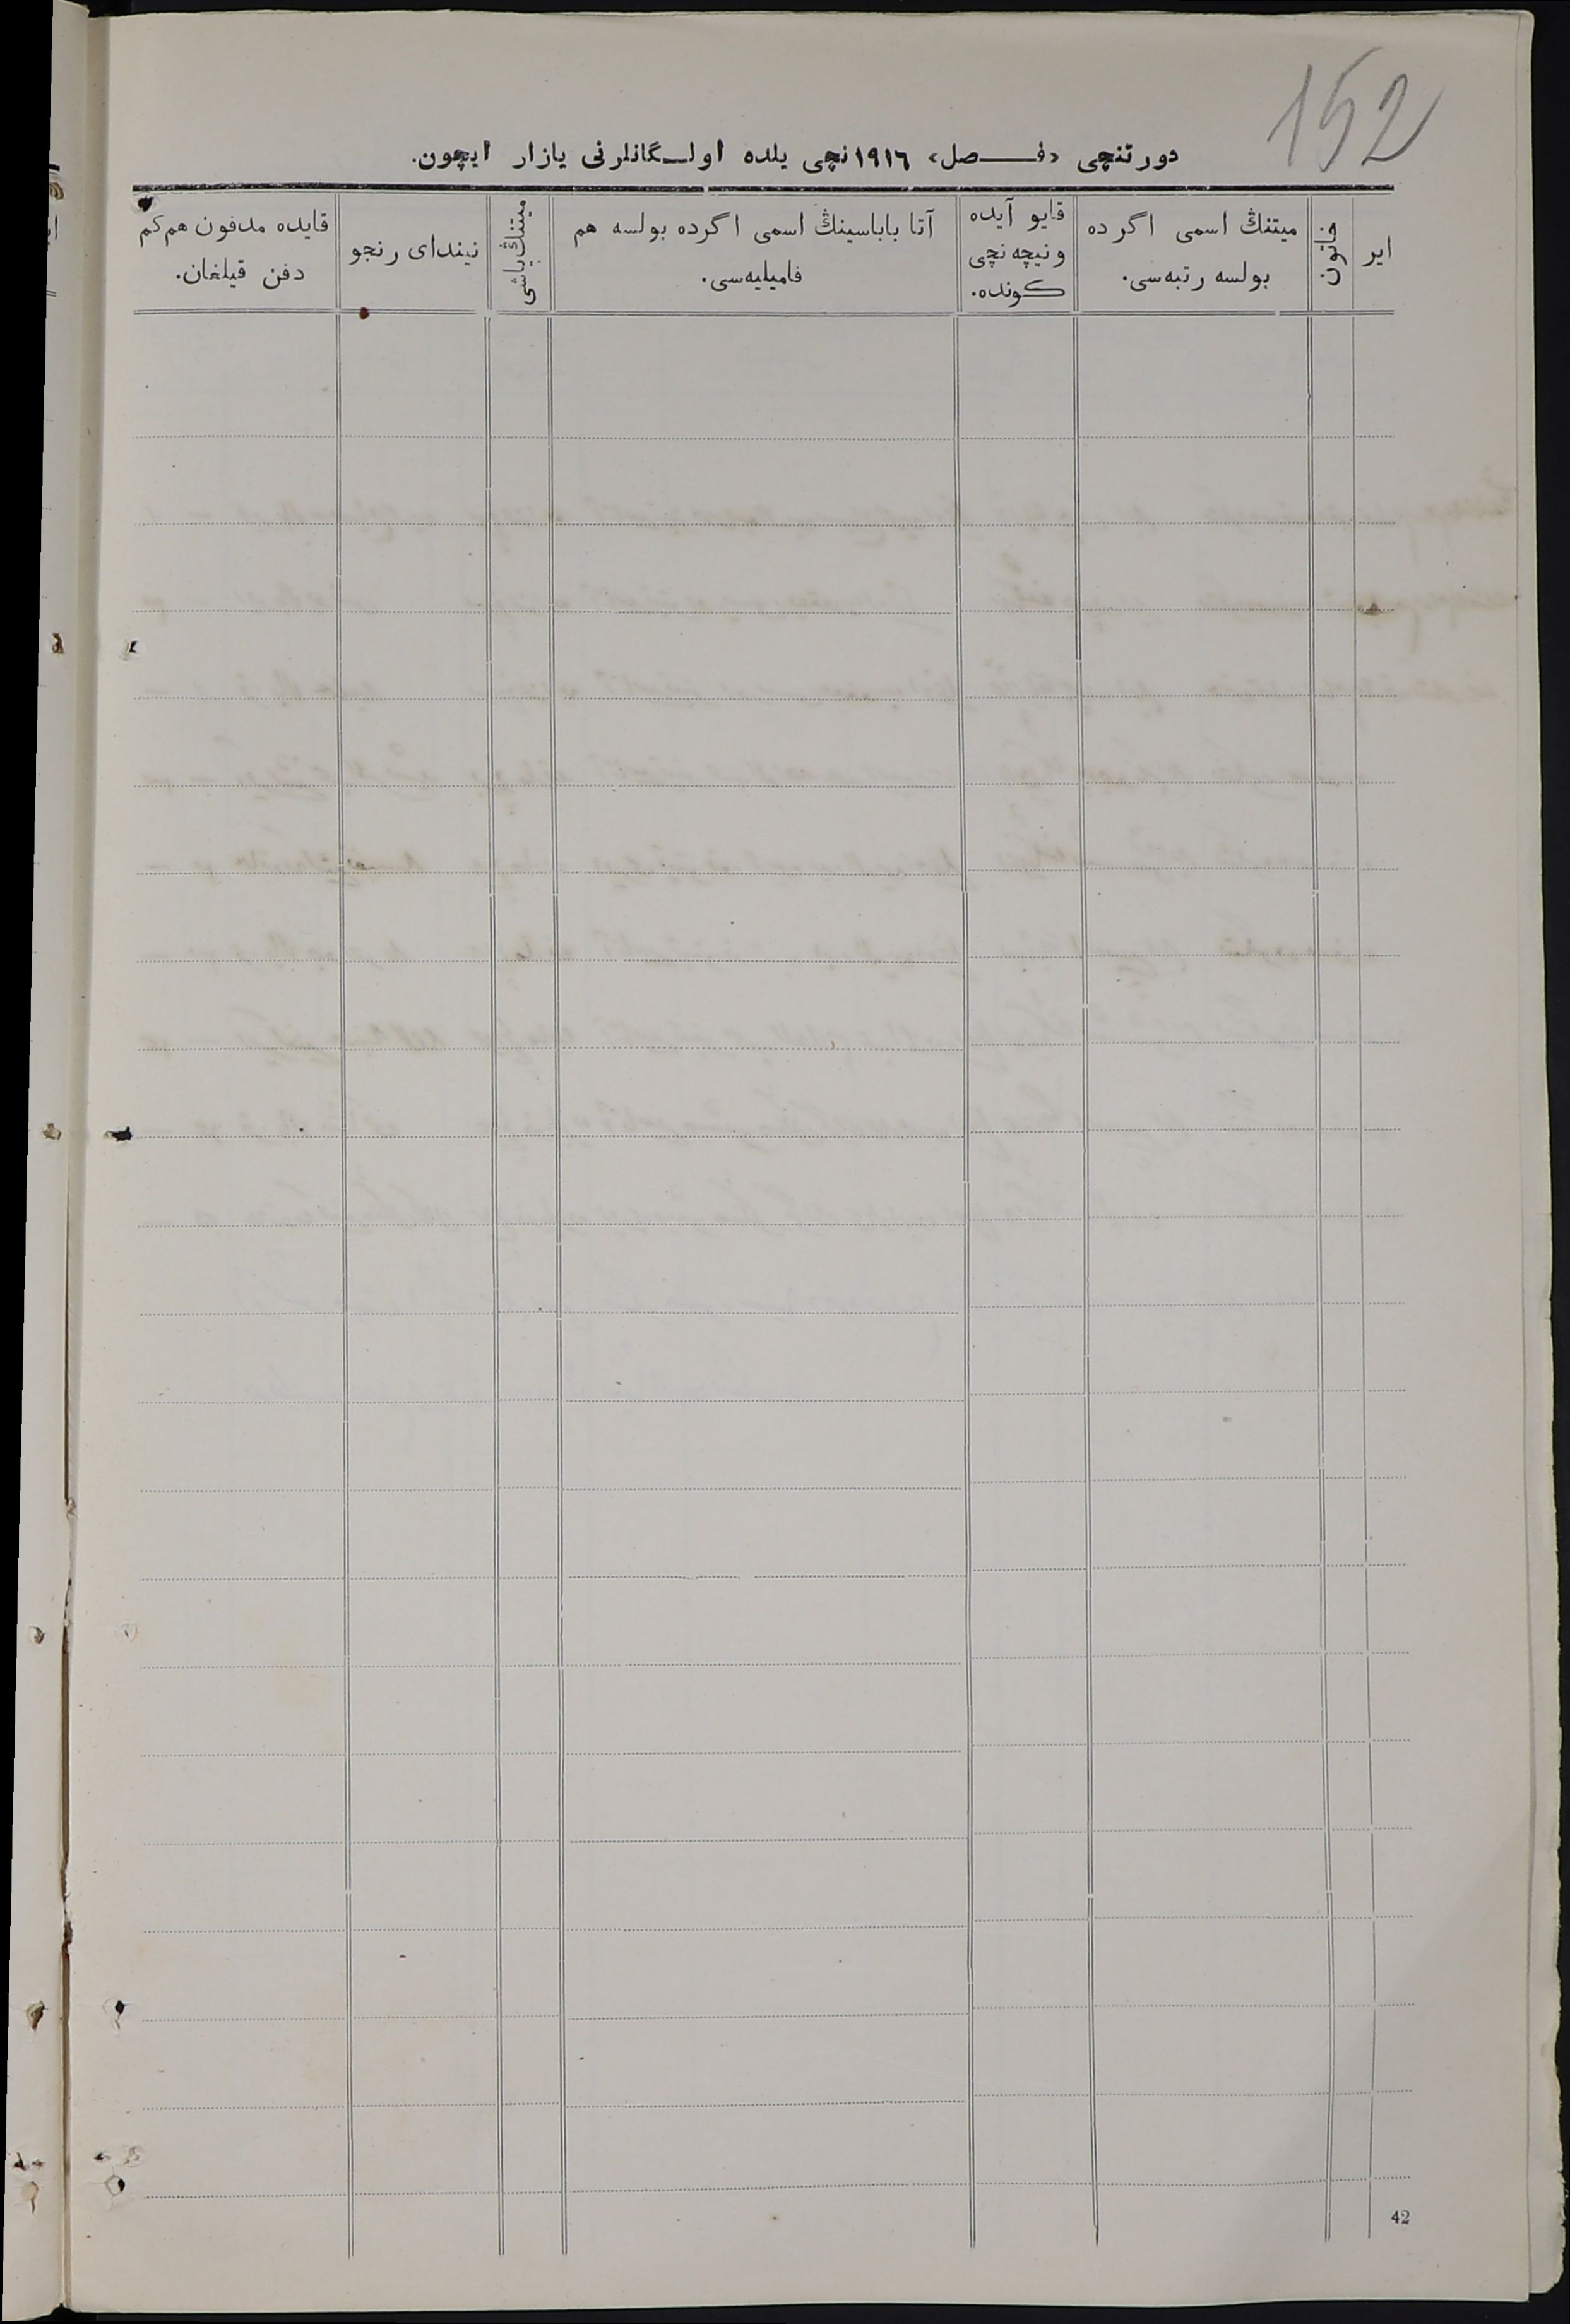 152
دورتنچی «فـصل» ١٩١٦نچی یلده اولـگانلرنی یازار ایچون.
ایر
خاتون
میتنڭ اسمی اگرده
بولسه رتبه‌سی.
قایو آیده
ونیچه نچی
کونده.
آتا باباسینڭ اسمی اگرده بولسه هم
فامیلیه‌سی.
میتنڭ یاشی
نیندای رنجو
قایده مدفون هم‌کم
دفن قیلغان.
42